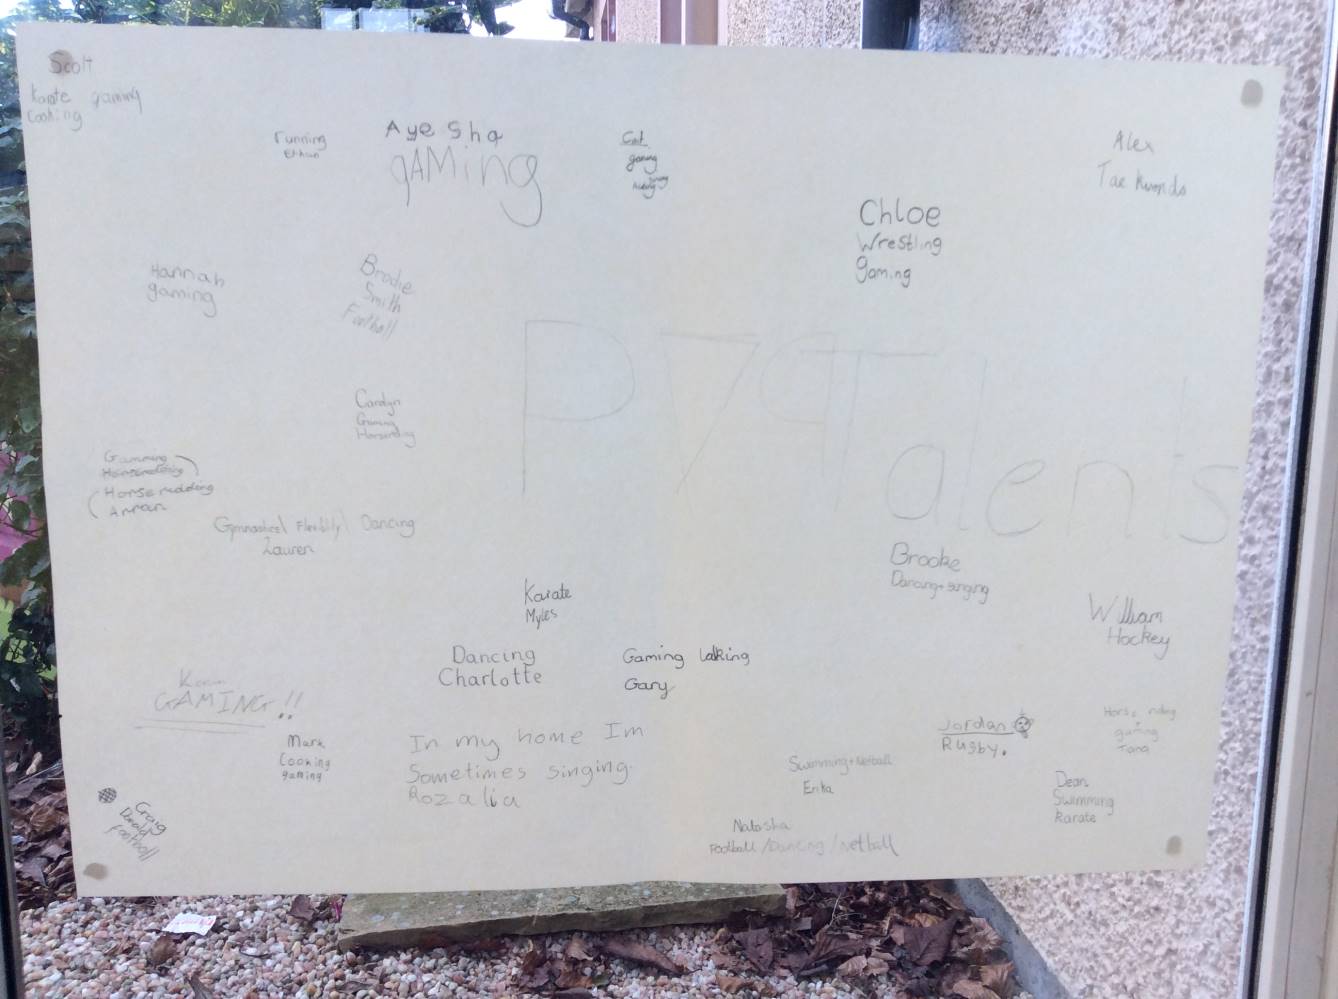 Scott
Karate gaming
Cooking
running
Ethan
Ayesha
gAMing
Cat
gaming
Alex
Tae Kwondo
Chloe
Wrestling
gaming
Hannah
gaming
Brodie
Smith
Football
P7P Talents
Carolyn
Gaming
Horseriding
Gamming
Horse redding
Arran
Gymnastics/ Flexibility/ Dancing
Lauren
Brooke
Dancing+singing
Karate
Myles
William
Hockey
Dancing
Charlotte
Gaming talking
Gary
GAMING!!
Mark
Cooking
gaming
In my home Im
Sometimes singing.
Rozalia
Jordan
Rugby.
Horse riding
+
gaming
Tana
Swimming+Netball
Erika
Dean
Swimming
Karate
Craig
Donald
Football
Natasha
Football/Dancing/netball